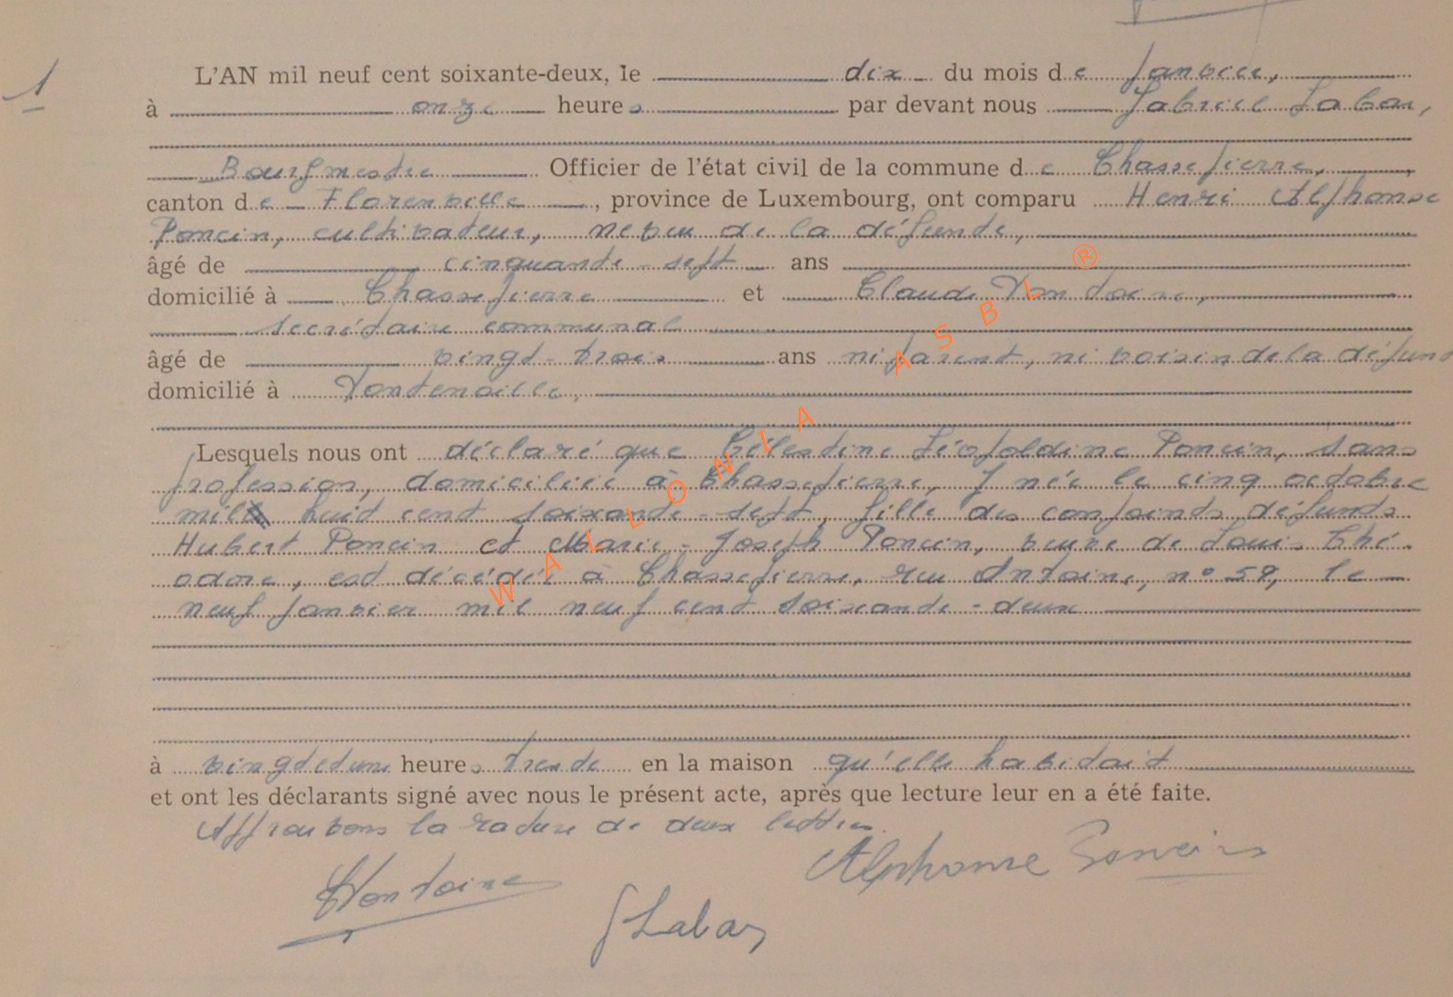 1
L'AN mil neuf cent soixante-deux, le dix du mois de Janvier,
à onze heures par devant nous Gabriel Labar,
Bourgmestre Officier de l'état civil de la commune de Chassepierre,
canton de Florenville, province de Luxembourg, ont comparu Henri Alphonse
Poncin, cultivateur, neveu de la défunte,
âgé de cinquante-sept ans
domicilié à Chassepierre et Claude Fontaine,
secrétaire communal
âgé de vingt-trois ans ni parent, ni voisin de la défunte
domicilié à Fontenoille,
Lesquels nous ont déclaré que Célestine Léopoldine Poncin, sans
profession, domiciliée à Chassepierre, y née le cinq octobre
mil huit cent soixante-sept, fille des conjoints défunts
Hubert Poncin et Marie-Joseph Poncin, veuve de Louis Thé-
odore, est décédée à Chassepierre, rue Antoine, n° 59, le
neuf janvier mil neuf cent soixante-deux
à vingt et une heures trente en la maison qu'elle habitait
et ont les déclarants signé avec nous le présent acte, après que lecture leur en a été faite.
Approuvons la rature de deux lettres.
Alphonse Poncin
Fontaine
G Labar
WALLONIA ASBL ®